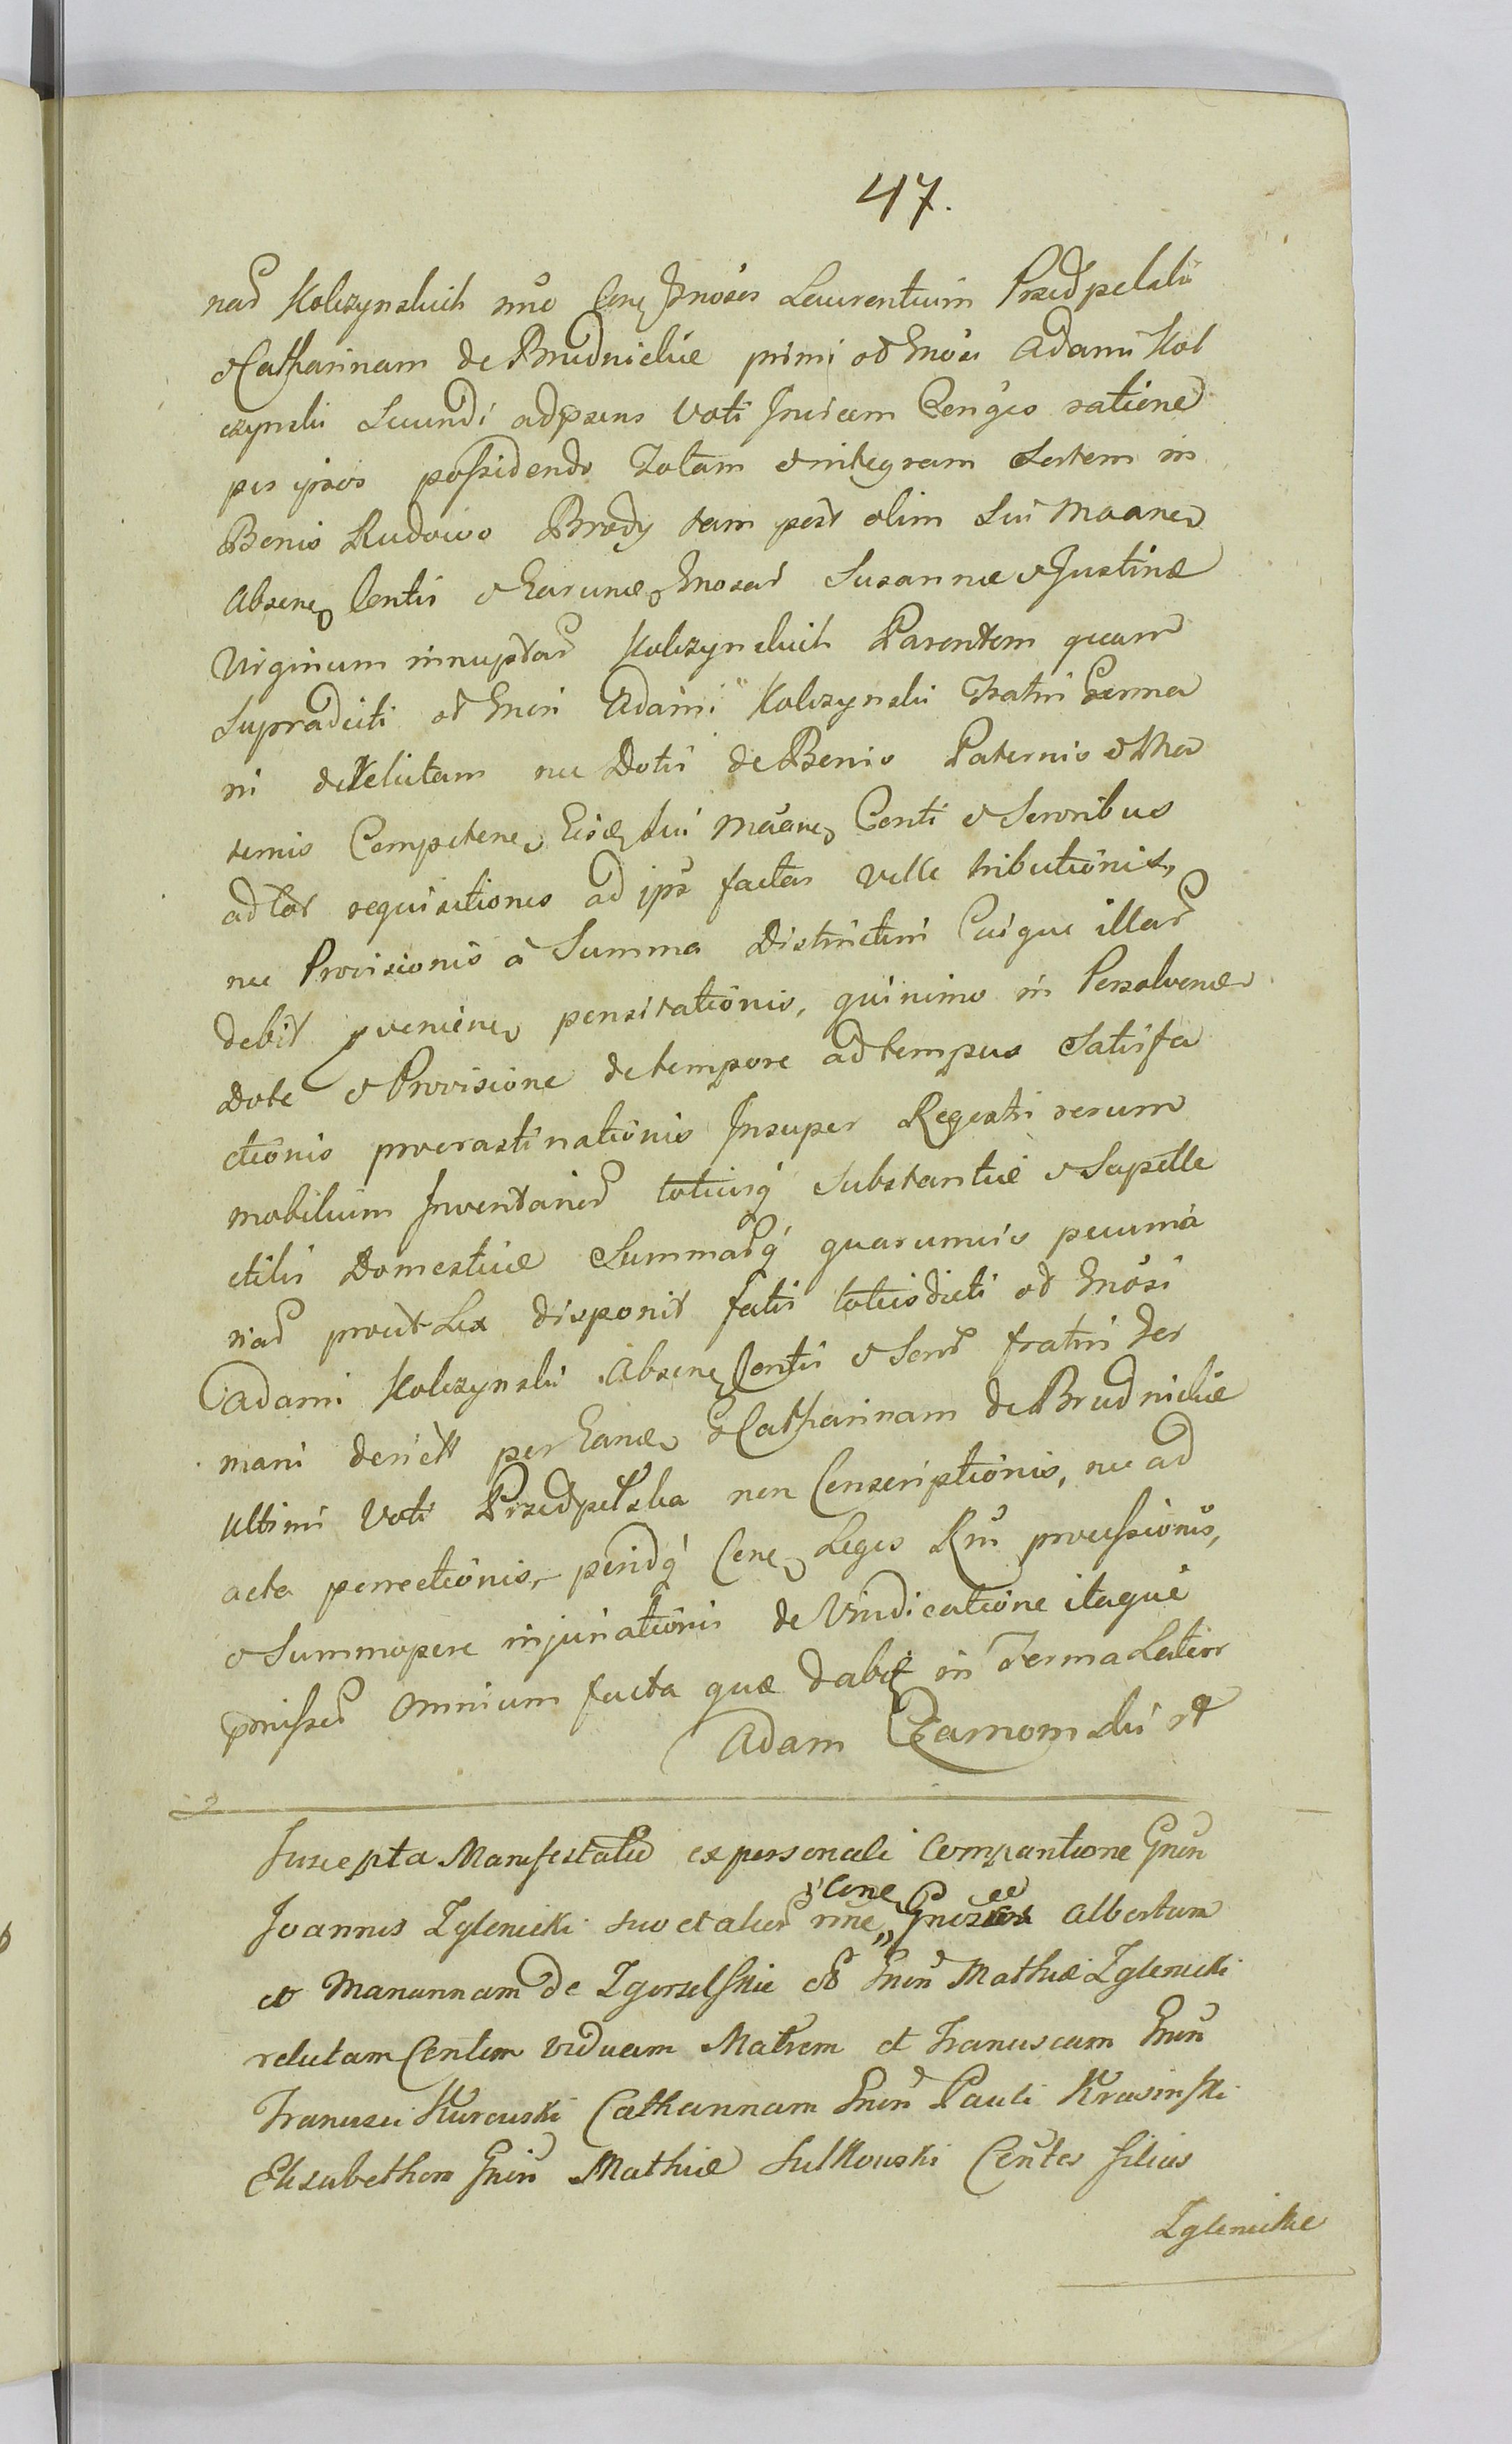 47.
nar Kolczynskich nne Cone Gnosos Laurentium Przedpelski
et Catharinam de Brudnickie primi ol Gnosi Adami Kol
czynski Secundi adpsens Voti Invicem Conges ratione
per ipsos possidendo Totam et integram Sortem in
Bonis Rudowo Brody tam post olim Sui Maane
Absene Contis et Earunde Gnosar Susannæ et Justinæ
Virginum innuptar Kolczynskich Parentem quam
Supradicti ol Gnosi Adami Kolczynski Fratri Germa
ni derelictam nec Dotis de Bonis Paternis et Ma
ternis Competene Eisdem sui Maane Conti et Sororibus
ad tot requisitiones ad ips factas Velle tributionis,
nec Provisionis à Summa Districtim Cuique illar
debit proveniene pensitationis, quinimo in Persolvenda
Dote et Provisione de tempore ad tempus Satisfa
ctionis procrastinationis Insuper Regestri rerum
mobilium Inventarior totiusq substantiæ et Supelle
ctilis Domesticæ Summarq quarumvis pecunia
riar prout Lex disponit fatis totiesdicti ol Gnosi
Adami Kolczynski Absene Contis et Soror fratris Ger
mani derelict per Eande et Catharinam de Brudnickie
Ultimi Voti Przedpelska non Conscriptionis, nec ad
acta porrectionis, perindq Cone Leges Rni processionis,
et Summopere injuriationis de Vindicatione itaque
præmissor Omnium facta quæ dabit in Forma Latiori
Adam Czarnomski
Suscepta Manifestatio ex personali Comparitione Gnen
Joannis Zglenicki suo et alior nne Cone Gnosos Albertum
et Mariannam de Zgorzelskie ol Gnen Mathiæ Zglenicki
relictam Contem viduam Matrem et Franciscam Gnen
Francisci Kurowski Catharinam Gnen Pauli Krasinski
Elisabetham Gnen Mathiæ Sulkowski Contes filias
Zglenickie